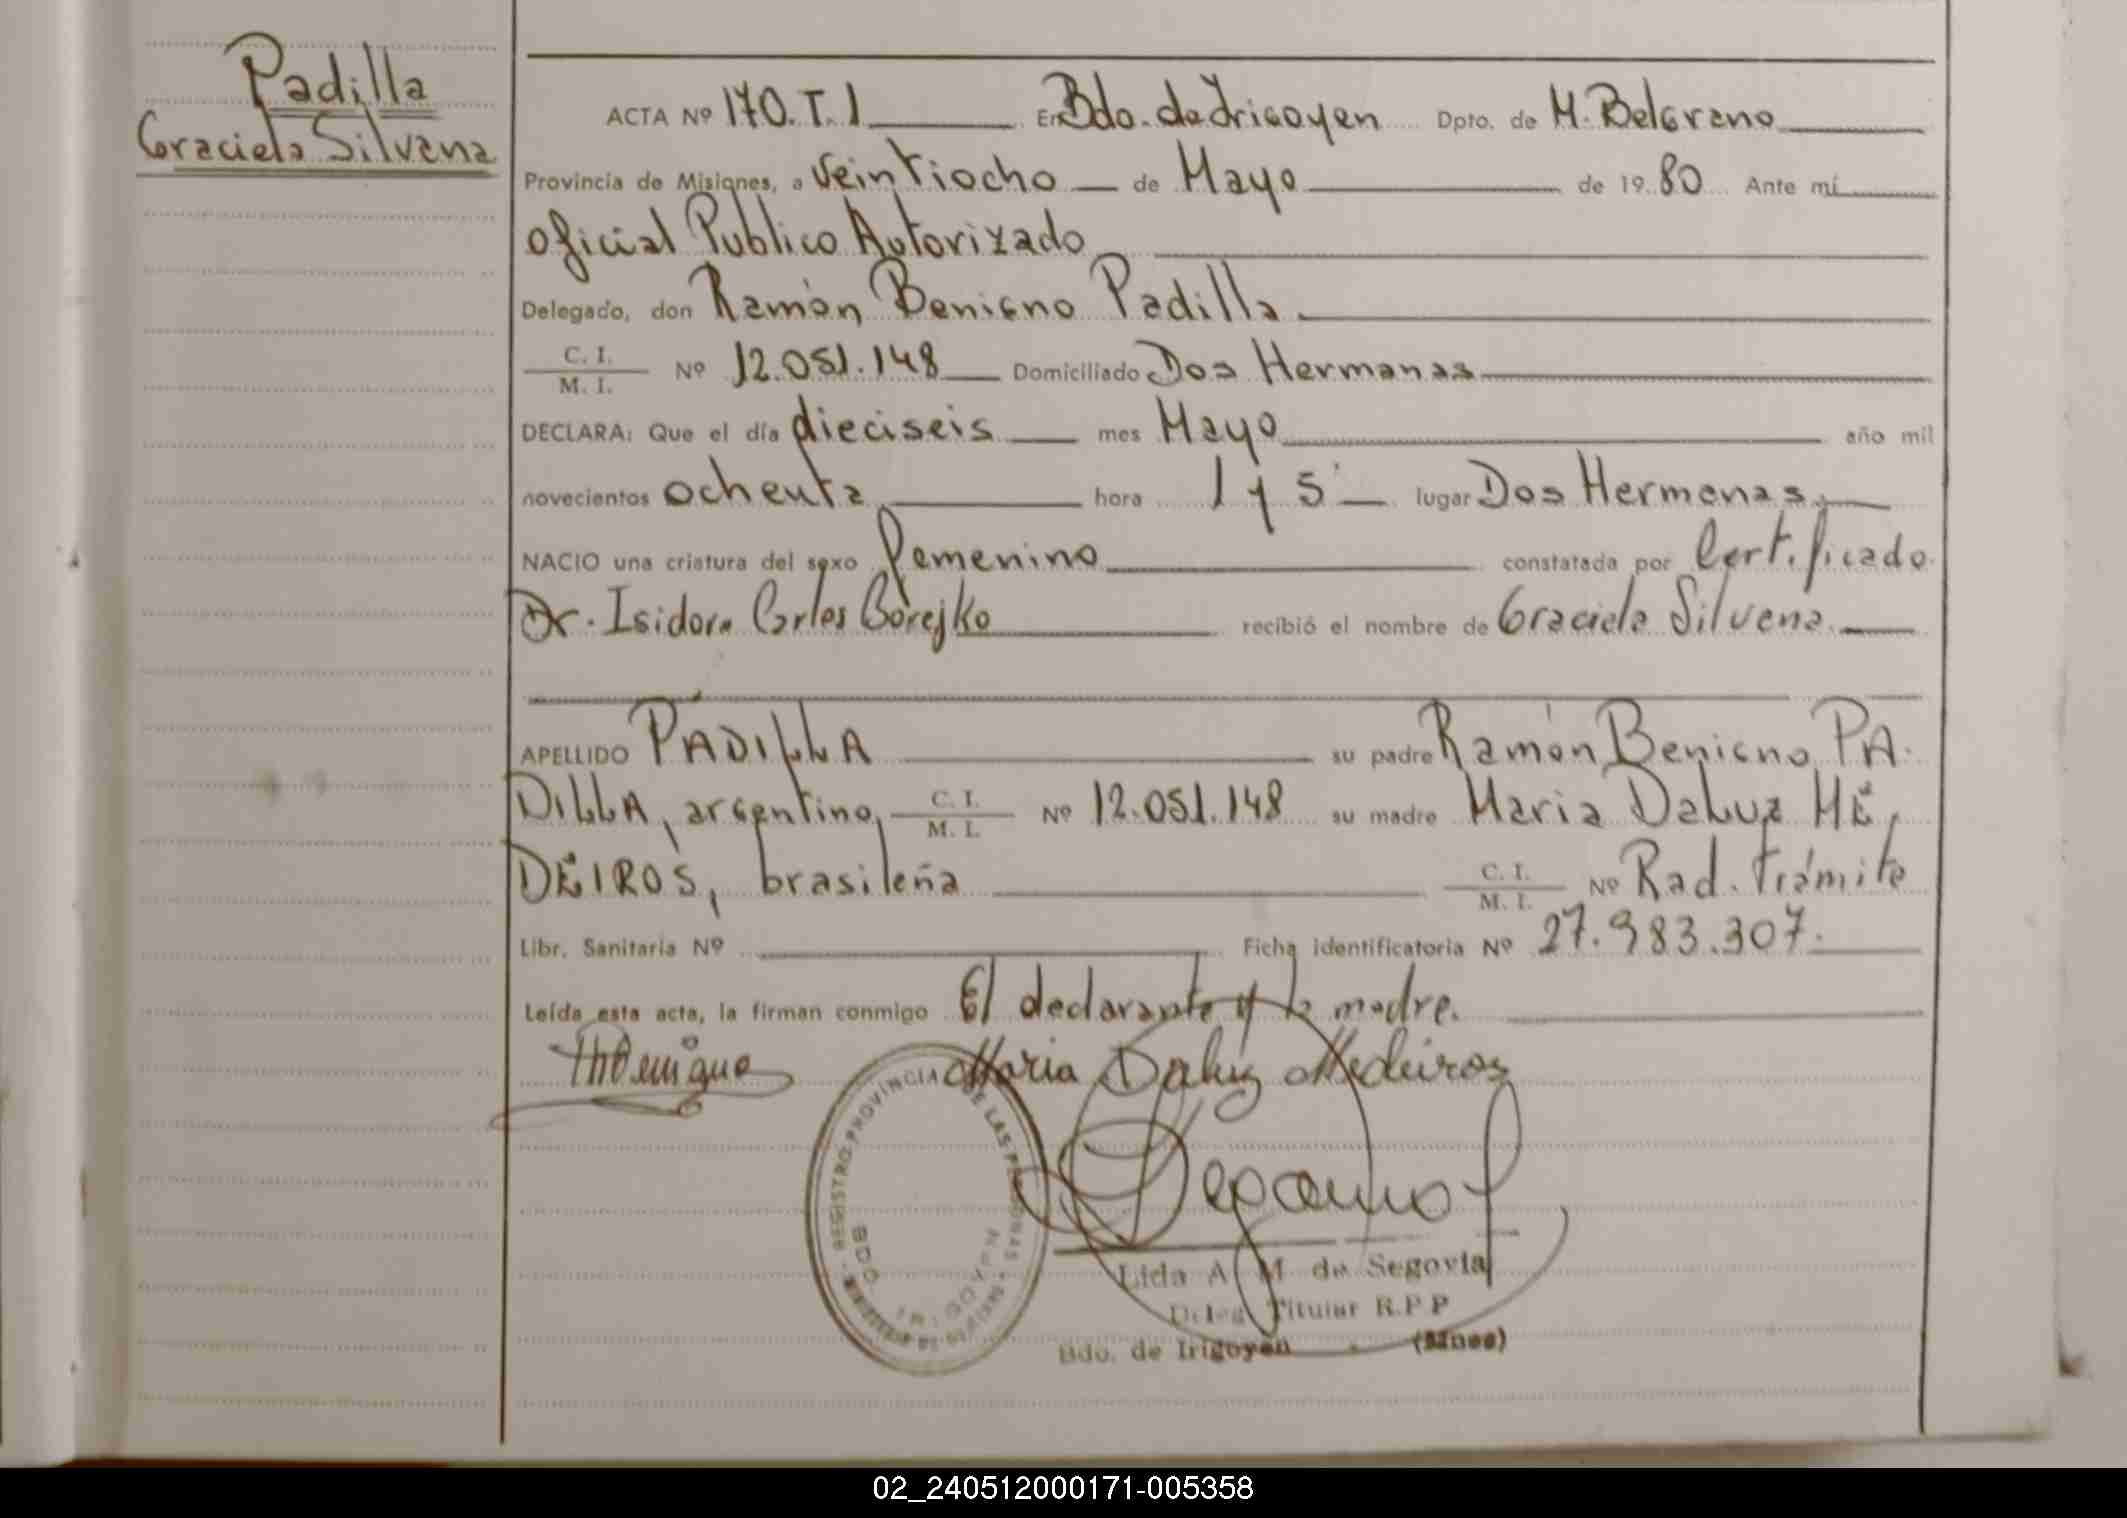 Padilla
Graciela Silvana
ACTA Nº 170.T.1 En Bdo. de Irigoyen Dpto. de M. Belgrano
Provincia de Misiones, a veintiocho de Mayo de 1980 Ante mí
Oficial Publico Autorizado
Delegado, don Ramón Benigno Padilla
C. I.
M. I.
Nº 12.051.148 Domiciliado Dos Hermanas
DECLARA: Que el día dieciseis mes Mayo año mil
novecientos ochenta hora 1 y 5 lugar Dos Hermanas
NACIO una criatura del sexo femenino constatada por Certificado
Dr. Isidoro Carlos Borejko recibió el nombre de Graciela Silvana
APELLIDO PADILLA su padre Ramón Benigno PA-
DILLA, argentino, C. I. M. I. Nº 12.051.148 su madre Maria DaLuz ME
DEIROS, brasileña C. I. M. I. Nº Rad. trámite
Libr. Sanitaria Nº Ficha identificatoria Nº 27.983.307.
Leída esta acta, la firman conmigo El declarante y la madre.
Maria Daluz Medeiros
REGISTRO PROVINCIAL DE LAS PERSONAS
BDO. IRIGOYEN
Lida A. M. de Segovia
Deleg Titular R.P.P
Bdo. de Irigoyen (Mnes)
02_240512000171-005358